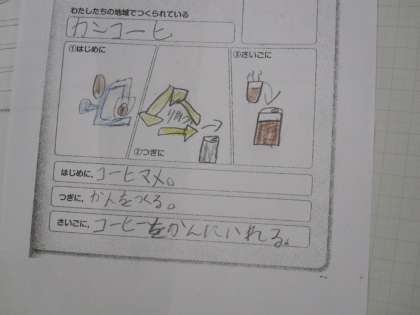 わたしたちの地域でつくられている
カンコーヒ
①はじめに
③さいごに
②つぎに
はじめに、コーヒマメ。
つぎに、かんをつくる。
さいごに、コーヒーをかんにいれる。